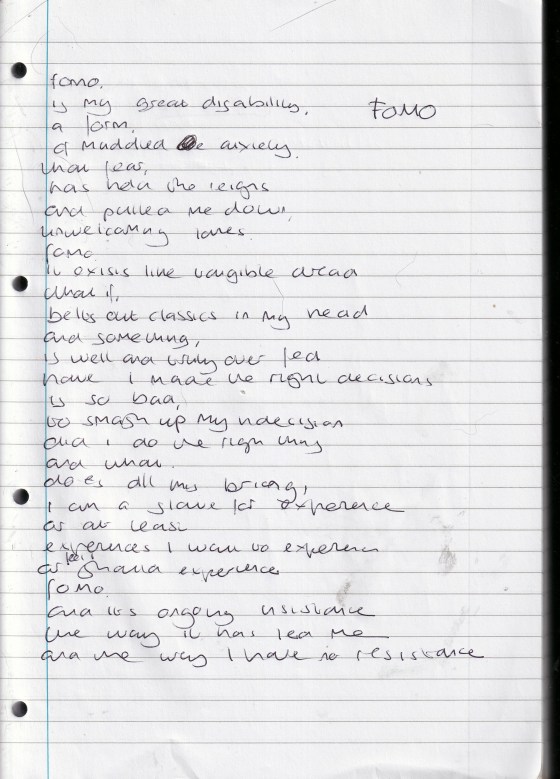 fomo.
is my great disability.
FOMO
a form,
of muddled anxiety.
that fear,
has held the reigns
and pulled me down,
unwelcoming lanes.
fomo.
it exists like tangible dread
what if,
belts out classics in my head
and something,
is well and truly over fed
have i made the right decisions
is so bad,
to smash up my ndecision
did i do the righ thing
and what.
does all this bring,
i am a slave for experience
or at least
experiences i want to experienc
or feel i experience
fomo.
and its ongoing insistance
the way it has led me
and the way I have no resistance